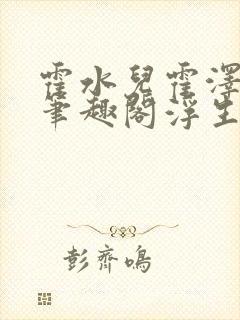 霍水兒霍澤
筆趣閣浮生
彭齊鳴